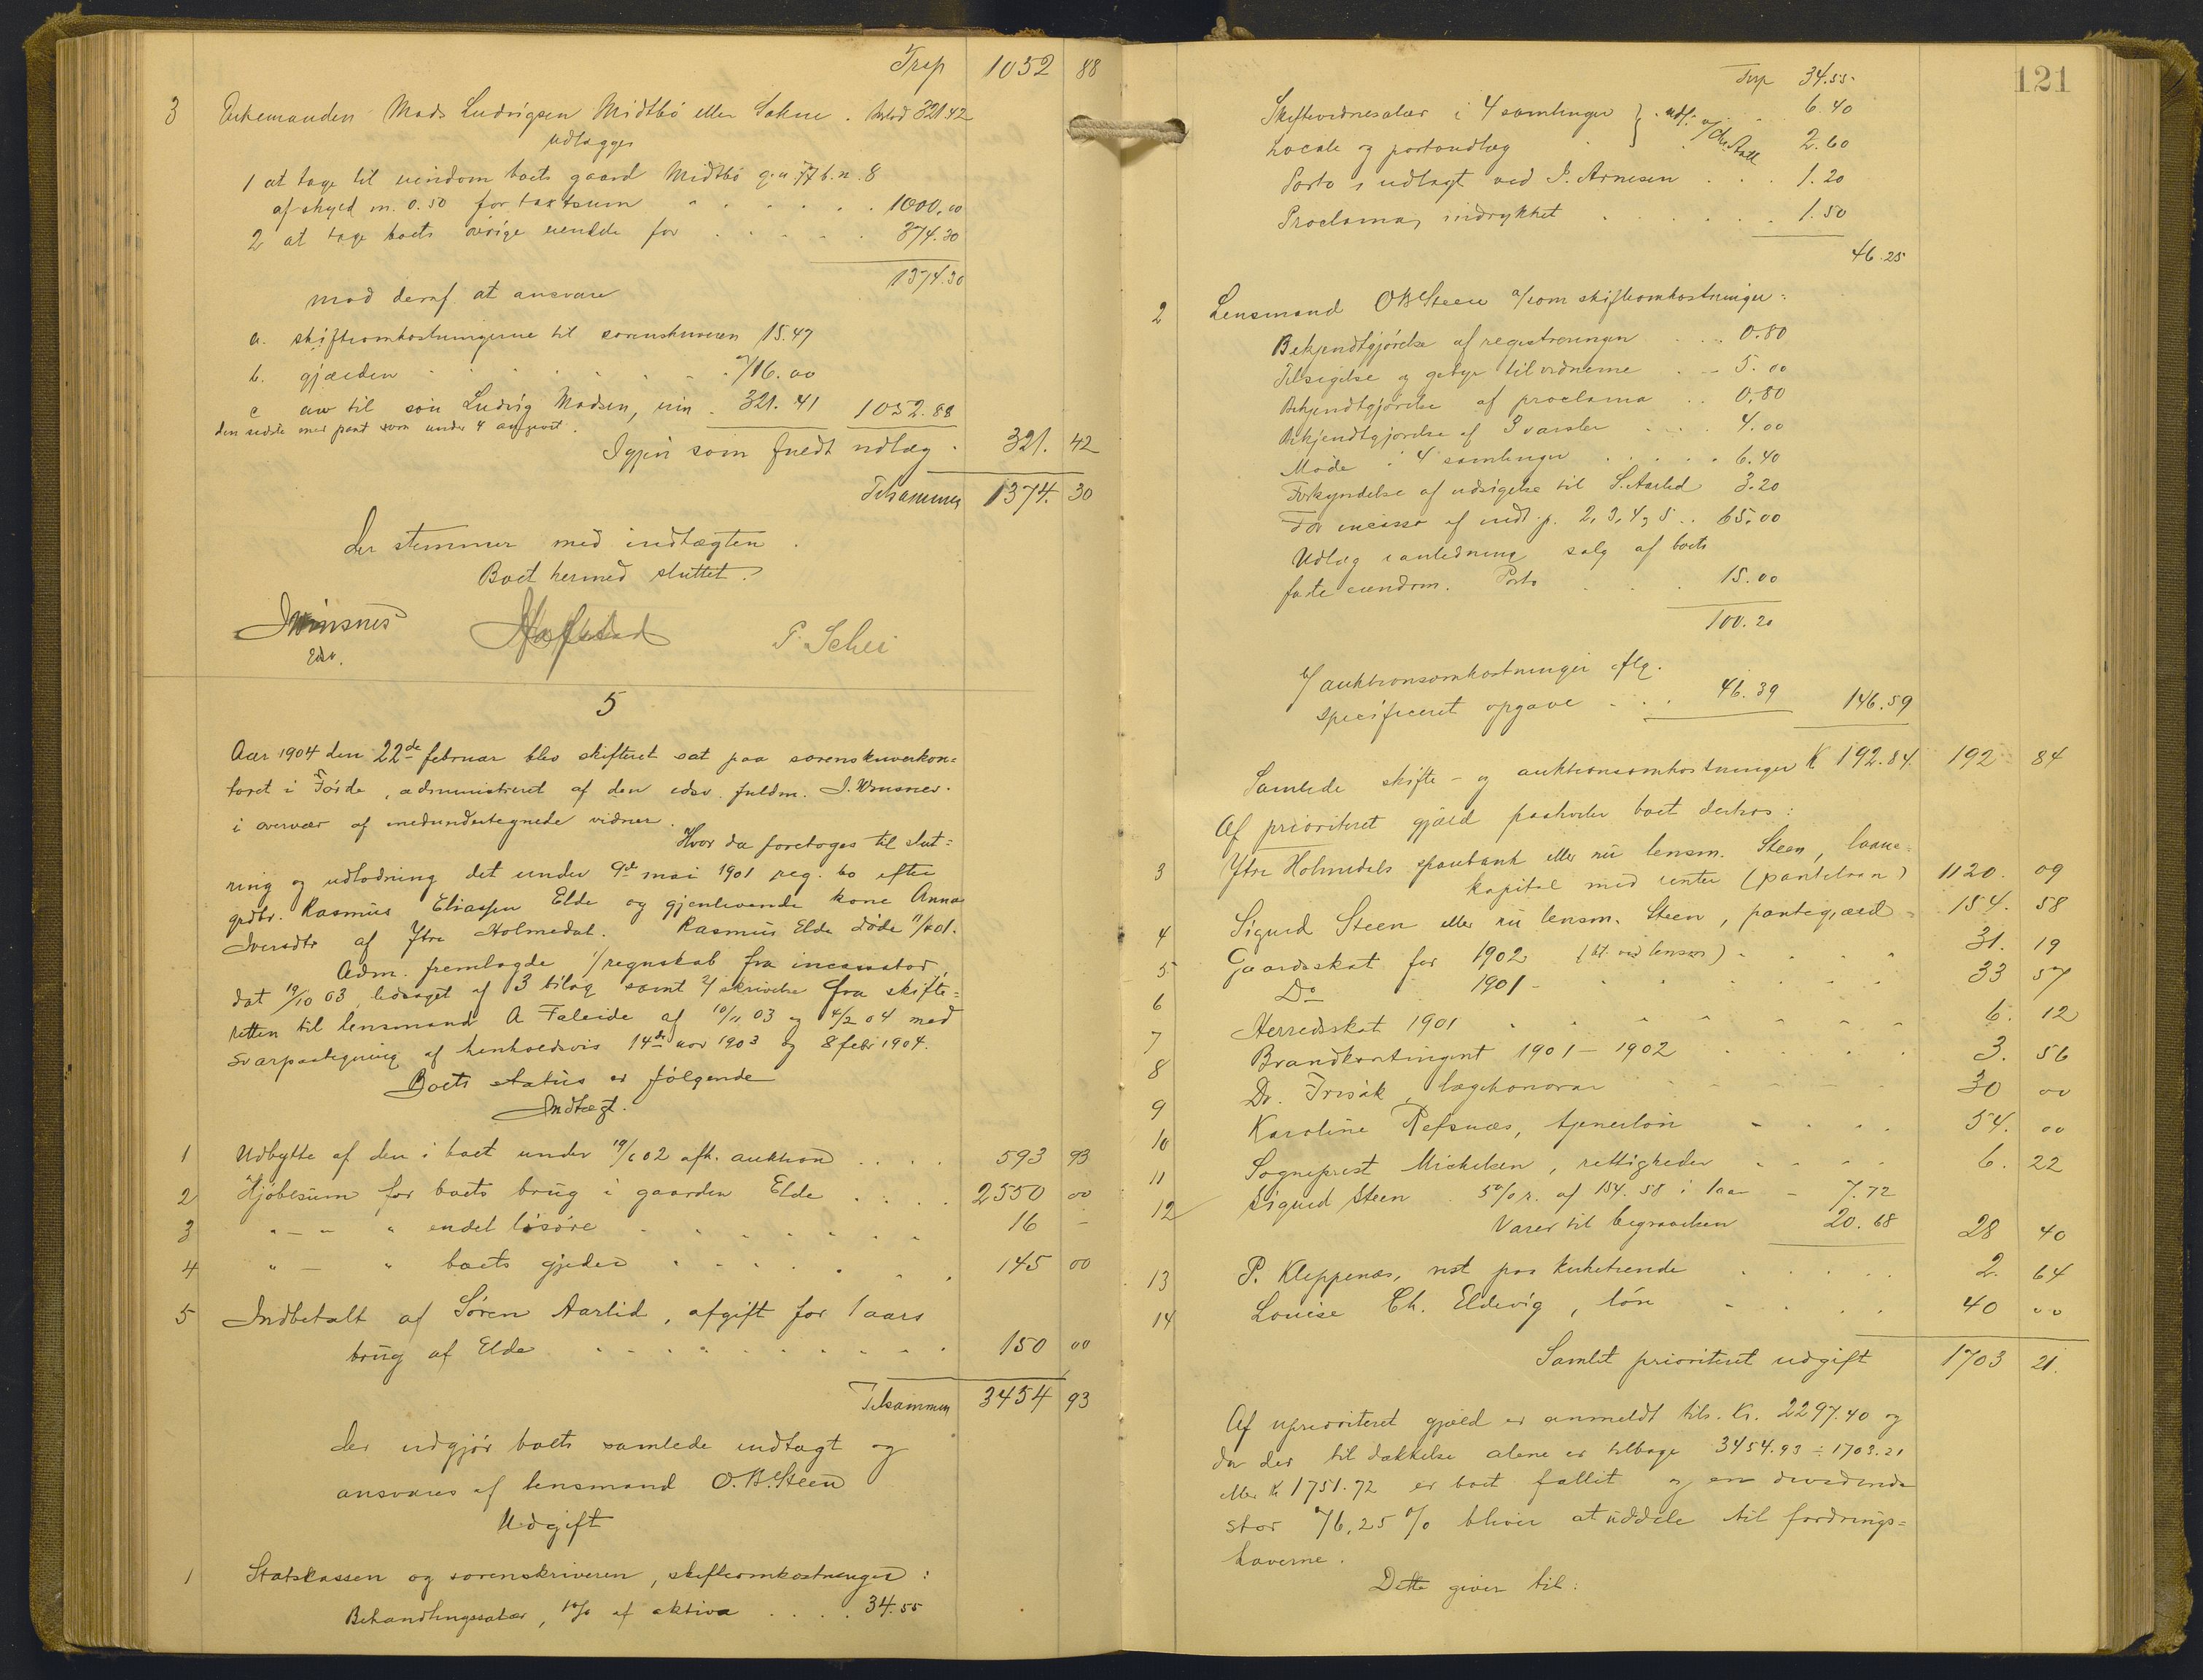 Trsp 1052 88
3 Enkemanden Mads Ludvigsen Midtbö eller Sakne. lod 321.42
udlægges
1 at tage til eiendom boets gaard Midtbö g.n 77 b.n. 8
af skyld m. 0.50 for taxtsum 1000.00
2 at tage boets övrige eiendele for 374.30
1374.30
mod deraf at ansvare
a. skifteomkostningerne til sorenskriveren 15.47
b. gjælden 716.00
c arv til sön Ludvig Madsen, min. 321.41 1052.88
den sidste mod pant som under 4 anfört.
Igjen som frelst udlæg. 321. 42
Tilsammen 1374. 30
der stemmer med indtægten.
Boet hermed sluttet.
J Winsnes
Edsv.
P. Schei
5
Aar 1904 den 22de februar blev skifteret sat paa sorenskriverkon=
toret i Förde, administreret af den edsv. fuldm. J. Winsnes.
i overvær af medundertegnede vidner.
Hvor da foretoges til slut=
ning og udlodning det under 9de mai 1901 reg. bo efter
grdbr. Rasmus Eliassen Elde og gjenlevende kone Anna
Iversdtr af Ytre Holmedal. Rasmus Elde döde 11/4 01.
Adm. fremlagde 1/ regnskab fra incassator,
dat 19/10 03 ledsaget af 3 bilag samt 2/ skrivelse fra skifte=
retten til lensmand A Faleide af 10/11 03 og 4/2 04 med
svarpaategning af henholdsvis 14de nov 1903 og 8 febr 1904.
Boets status er fölgende
Indtægt.
1 Udbytte af den i boet under 19/6 02 afh. auktion 593 93
2 Kjöbesum for boets brug i gaarden Elde 2550 00
3 " — " endel lösöre 16 -
4 " — " boets gjeder 145 00
5 Indbetalt af Sören Aarlid, afgift for 1 aars
brug af Elde 150 00
Tilsammen 3454 93
der udgjör boets samlede indtægt og
ansvares af lensmand O.B. Steen
Udgift
1 Statskassen og sorenskriveren, skifteomkostninger:
Behandlingssalær, 1% af aktiva 34.55
121
Trsp 34.55
Skiftevidnesalær i 4 samlinger 6.40
Locale og portoudlæg 2.60
Porto udlagt ved I. Arnesen 1.20
Proclama, indrykket 1.50
46.25
2 Lensmand O B Steen a/ som skifteomkostninger:
Bekjendtgjörelse af registreringen 0.80
Tilsigelse og gebyr til vidnerne 5.00
Bekjendtgjörelse af proclama 0.80
Bekjendtgjörelse af 3 varsler 4.00
Möde i 4 samlinger 6.40
Forkyndelse af udsigelse til S. Aarlid 3.20
For incasso af indt.p. 2, 3, 4 og 5 65.00
Udlæg i anledning salg af boets
faste eiendom. Porto 15.00
100.20
b/ auktionsomkostninger iflg.
specificeret opgave 46.39 146.59
Samlede skifte- og auktionsomkostninger K 192.84 192 84
Af prioriteret gjæld paahviler boet derhos:
3 Ytre Holmedals sparebank eller nu lensm. Steen, laane=
kapital med renter (pantelaan) 1120. 09
4 Sigurd Steen eller nu lensm. Steen, pantegjæld 154. 58
5 Gaardsskat for 1902 (bt. ved lensm) 31. 19
6 Do 1901 33 57
7 Herredsskat 1901 6. 12
8 Brandkontingent 1901-1902 3. 56
9 Dr. Frisak, lægehonorar 30 00
10 Karoline Refsnæs, tjenerlön 54. 00
11 Sogneprest Michelsen, rettigheder 6. 22
12 Sigurd Steen 5% r. af 154.58 i 1 aar 7.72
Varer til begravelsen 20.68 28 40
13 P. Kleppenæs, rest paa 2. 64
14 Louise Ch. Eldevig, lön 40 00
Samlet prioriteret udgift 1703 21.
Af uprioriteret gjæld er anmeldt tils. Kr. 2297.40 og
da der til dækkelse alene er tilbage 3454.93 ÷ 1703.21
eller Kr 1751.72 er boet fallit og en dividende
stor 76,25 % bliver at uddele til fordrings=
haverne.
Dette giver til: